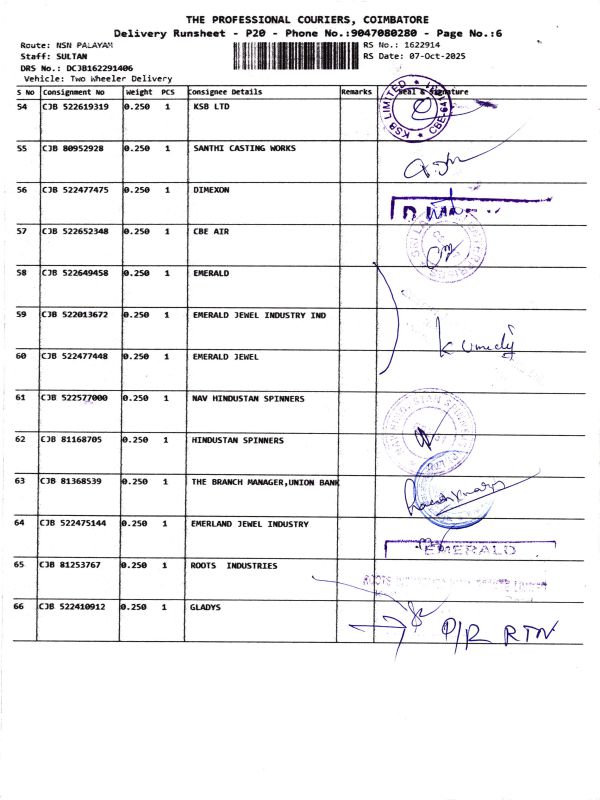 THE PROFESSIONAL COURIERS, COIMBATORE
Delivery Runsheet - P20 - Phone No.:9047080280 - Page No.:6
Route: NSN PALAYAM
RS No.: 1622914
Staff: SULTAN
RS Date: 07-Oct-2025
DRS No.: DCJB162291406
Vehicle: Two Wheeler Delivery
S No Consignment No Weight PCS Consignee Details Remarks Seal & Signature
54 CJB 522619319 0.250 1 KSB LTD
KSB LIMITED
55 CJB 80952928 0.250 1 SANTHI CASTING WORKS
56 CJB 522477475 0.250 1 DIMEXON
57 CJB 522652348 0.250 1 CBE AIR
58 CJB 522649458 0.250 1 EMERALD
59 CJB 522013672 0.250 1 EMERALD JEWEL INDUSTRY IND
60 CJB 522477448 0.250 1 EMERALD JEWEL
61 CJB 522577000 0.250 1 NAV HINDUSTAN SPINNERS
62 CJB 81168705 0.250 1 HINDUSTAN SPINNERS
63 CJB 81368539 0.250 1 THE BRANCH MANAGER,UNION BANK
64 CJB 522475144 0.250 1 EMERLAND JEWEL INDUSTRY
EMERALD
65 CJB 81253767 0.250 1 ROOTS INDUSTRIES
ROOTS
66 CJB 522410912 0.250 1 GLADYS
P/R RTN